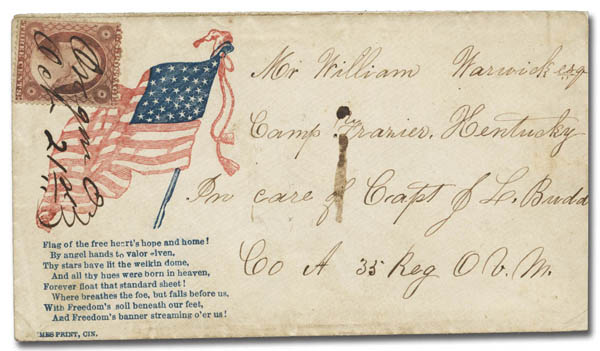 Mr William Warwick esq
Camp Frazier, Kentucky
In care of Capt J L. Budd
Co A 35 Reg O V. M.
Flag of the free heart's hope and home!
By angel hands to valor given,
Thy stars have lit the welkin dome,
And all thy hues were born in heaven,
Forever float that standard sheet!
Where breathes the foe, but falls before us,
With Freedom's soil beneath our feet,
And Freedom's banner streaming o'er us!
PRINT, CIN.